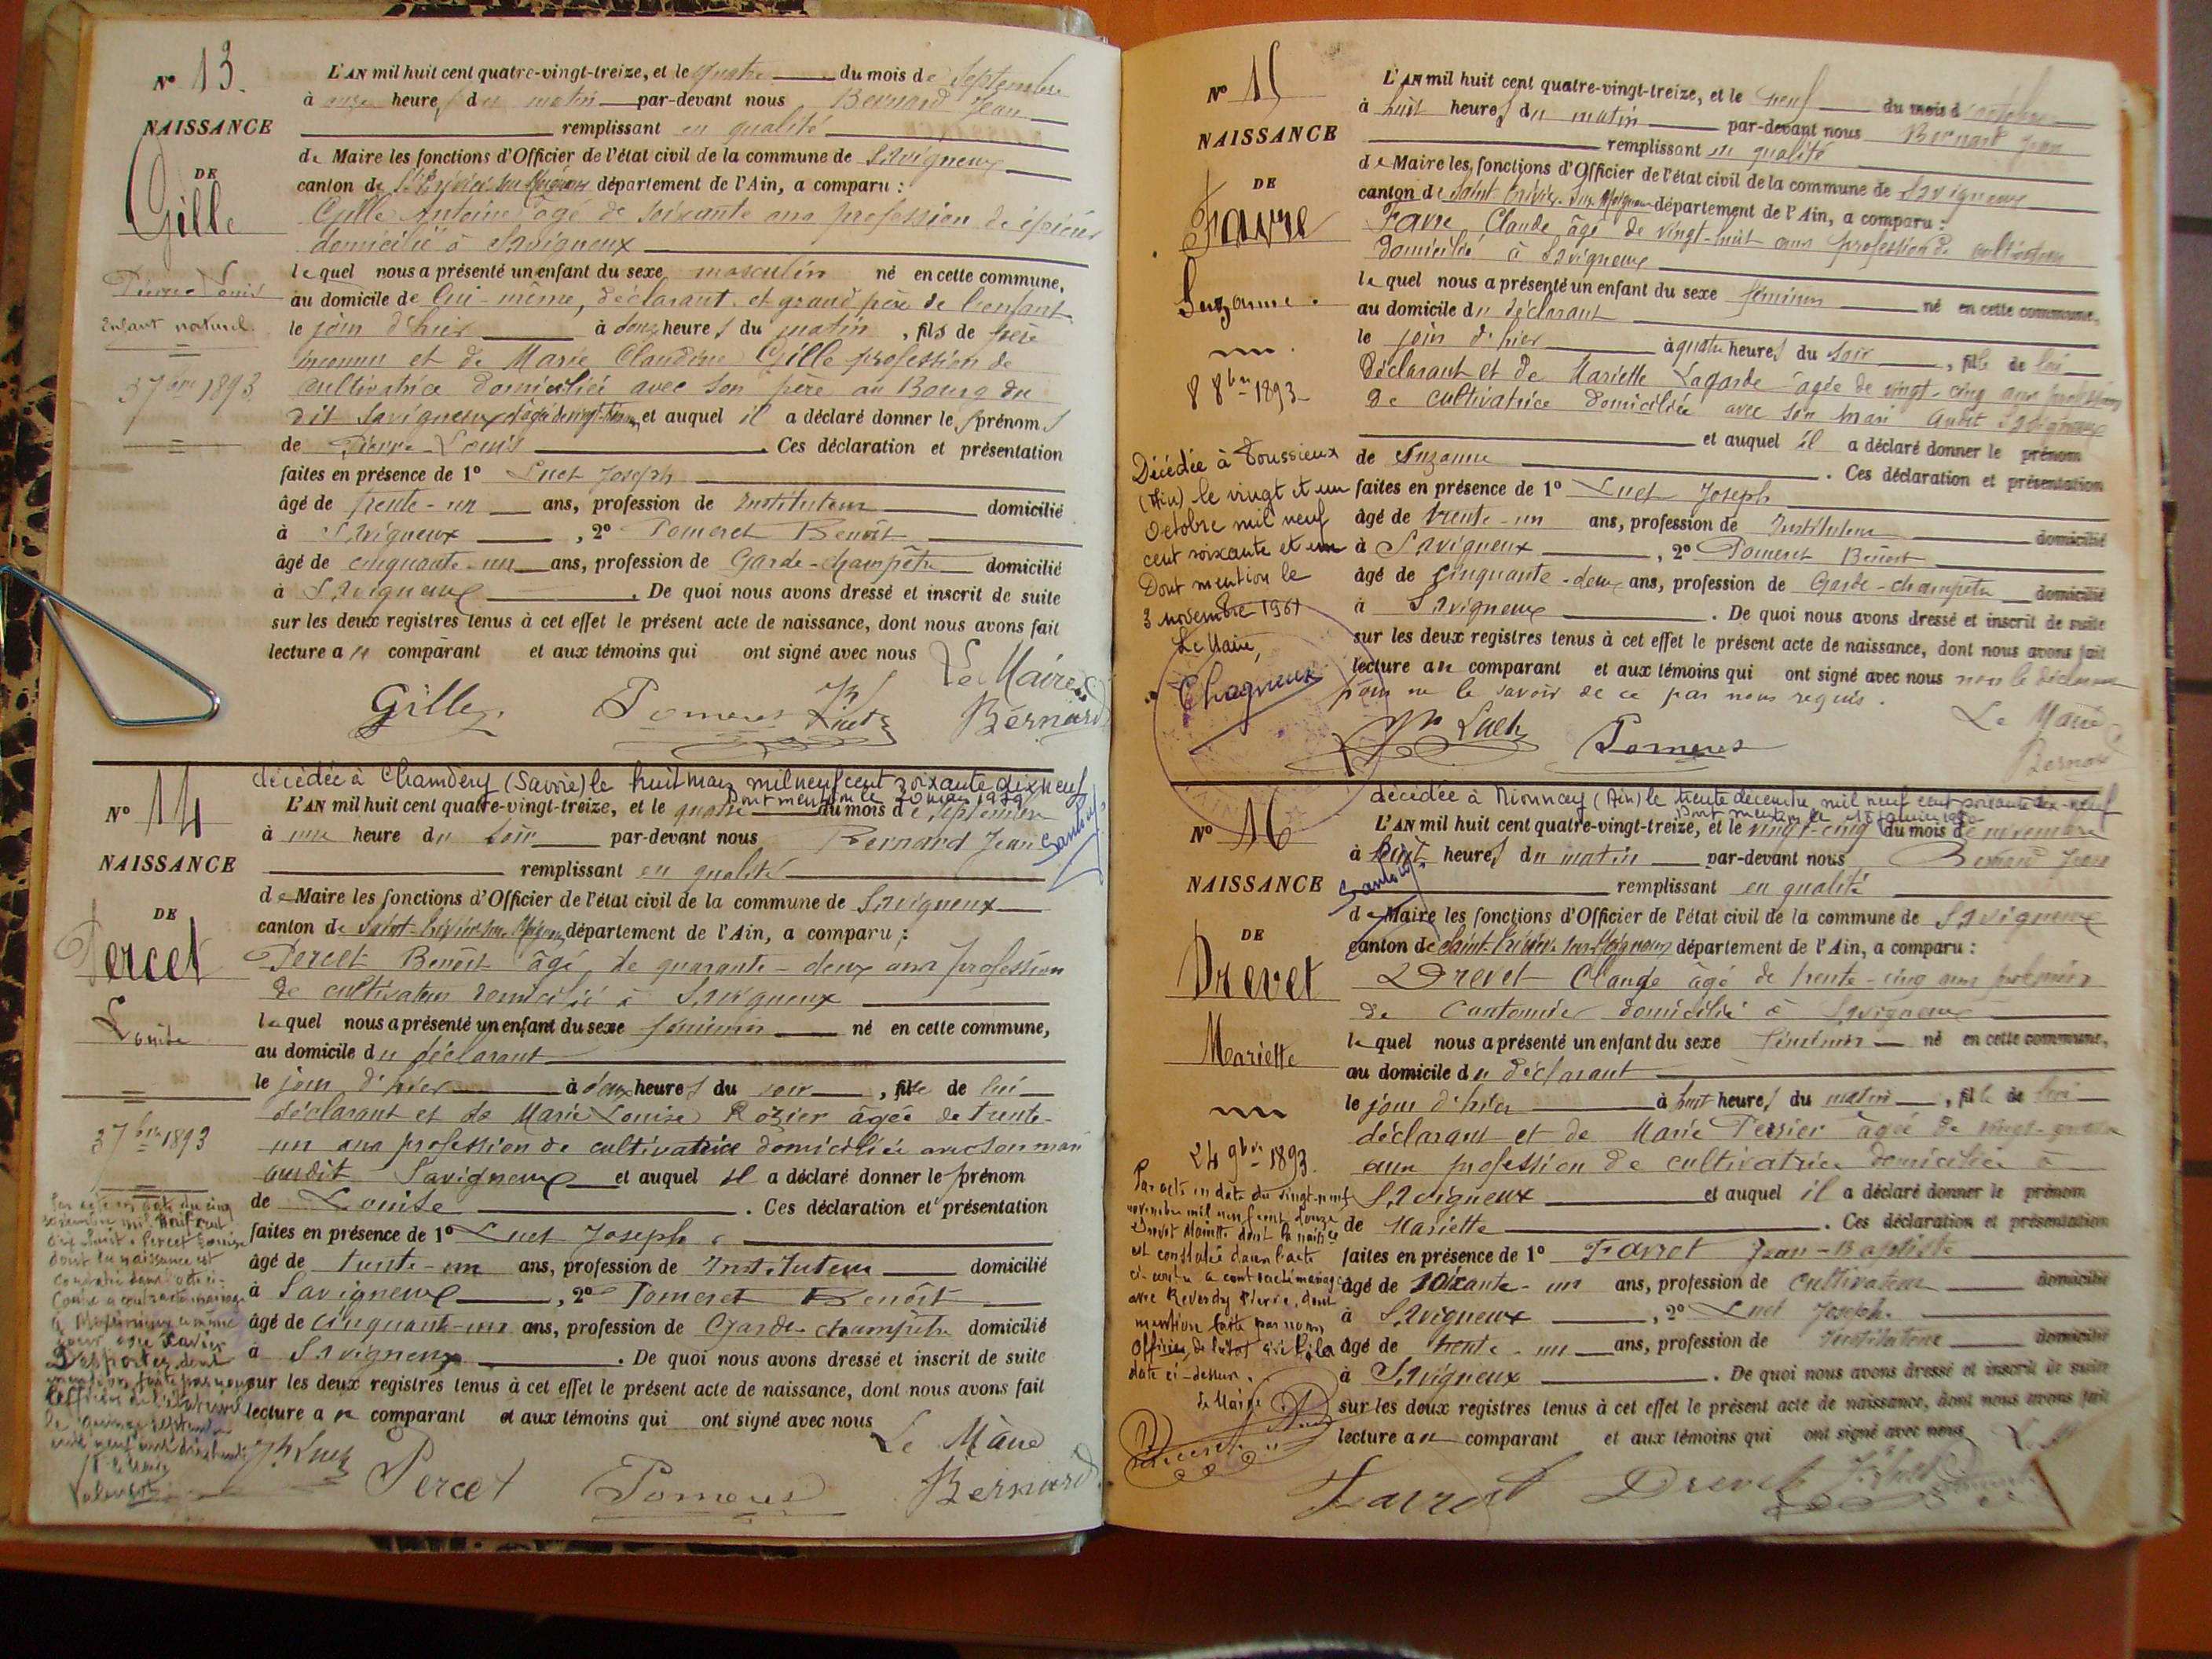 N° 13.
NAISSANCE
DE
Gille
Pierre-Louis
Enfant naturel
3 7bre 1893
L'AN mil huit cent quatre-vingt-treize, et le quatre du mois de Septembre
à onze heures du matin par-devant nous Bernard Jean
remplissant en qualité
de Maire les fonctions d'Officier de l'état civil de la commune de Savigneux
canton de St Trivier sur Moignans département de l'Ain, a comparu :
Gille Antoine âgé de soixante ans profession de épicier
domicilié à Savigneux
lequel nous a présenté un enfant du sexe masculin né en cette commune,
au domicile de lui-même, déclarant et grand père de l'enfant
le jour d'hier à heures du matin, fils de père
inconnu et de Marie Claudine Gille profession de
cultivatrice domiciliée avec son père au Bourg du
dit Savigneux et auquel il a déclaré donner les prénoms
de Pierre-Louis. Ces déclaration et présentation
faites en présence de 1° Luet Joseph
âgé de trente-un ans, profession de Instituteur domicilié
à Savigneux, 2° Pomeret Benoît
âgé de cinquante-un ans, profession de Garde-champêtre domicilié
à Savigneux. De quoi nous avons dressé et inscrit de suite
sur les deux registres tenus à cet effet le présent acte de naissance, dont nous avons fait
lecture au comparant et aux témoins qui ont signé avec nous
Le Maire
Gille Pomeret Jh Luet Bernard
N° 14
NAISSANCE
DE
Percet
Louise
3 7bre 1893
décédée à Chambéry (Savoie) le huit mars mil neuf cent soixante dix neuf
Dont mention le 20 mars 1979
L'AN mil huit cent quatre-vingt-treize, et le quatre du mois de Septembre
à une heure du soir par-devant nous Bernard Jean
remplissant en qualité
de Maire les fonctions d'Officier de l'état civil de la commune de Savigneux
canton de Saint-Trivier sur Moignans département de l'Ain, a comparu :
Percet Benoît âgé de quarante-deux ans profession
de cultivateur domicilié à Savigneux
lequel nous a présenté un enfant du sexe féminin né en cette commune,
au domicile du déclarant
le jour d'hier à deux heures du soir, fille de lui
déclarant et de Marie Louise Rozier âgée de trente-
un ans profession de cultivatrice domiciliée avec son mari
audit Savigneux et auquel il a déclaré donner le prénom
de Louise. Ces déclaration et présentation
faites en présence de 1° Luet Joseph
âgé de trente-un ans, profession de Instituteur domicilié
à Savigneux, 2° Pomeret Benoît
âgé de cinquante-un ans, profession de Garde-champêtre domicilié
à Savigneux. De quoi nous avons dressé et inscrit de suite
sur les deux registres tenus à cet effet le présent acte de naissance, dont nous avons fait
lecture au comparant et aux témoins qui ont signé avec nous
Le Maire
Jh Luet Percet Pomeret Bernard
Par acte en date du cinq
mil neuf cent
dix huit Percet Louise
dont la naissance est
constatée dans l'acte ci-
contre a contracté mariage
avec Xavier
Desportes dont
mention faite par nous
officier de l'état civil
le quinze septembre
mil neuf cent dix huit
Le Maire
N° 15
NAISSANCE
DE
Favre
Suzanne.
8 8bre 1893
L'AN mil huit cent quatre-vingt-treize, et le neuf du mois d'octobre
à huit heures du matin par-devant nous Bernard Jean
remplissant en qualité
de Maire les fonctions d'Officier de l'état civil de la commune de Savigneux
canton de Saint Trivier-sur-Moignans département de l'Ain, a comparu :
Favre Claude âgé de vingt-huit ans profession de cultivateur
domicilié à Savigneux
lequel nous a présenté un enfant du sexe féminin né en cette commune,
au domicile du déclarant
le jour d'hier à quatre heures du soir, fille de lui
déclarant et de Mariette Lagarde âgée de vingt-cinq ans profession
de cultivatrice domiciliée avec son mari audit Savigneux
et auquel il a déclaré donner le prénom
de Suzanne. Ces déclaration et présentation
faites en présence de 1° Luet Joseph
âgé de trente-un ans, profession de Instituteur domicilié
à Savigneux, 2° Pomeret Benoît
âgé de cinquante-deux ans, profession de Garde-champêtre domicilié
à Savigneux. De quoi nous avons dressé et inscrit de suite
sur les deux registres tenus à cet effet le présent acte de naissance, dont nous avons fait
lecture au comparant et aux témoins qui ont signé avec nous non le déclarant
pour ne le savoir de ce par nous requis.
Jh Luet Pomeret Le Maire
Bernard
Décédée à Toussieux
(Ain) le vingt et un
Octobre mil neuf
cent soixante et un
Dont mention le
3 novembre 1961
Le Maire,
Chagneux
N° 16
NAISSANCE
DE
Drevet
Mariette
24 9bre 1893.
décédée à Mionnay (Ain) le trente décembre mil neuf cent soixante dix-neuf
Dont mention le janvier 1980
L'AN mil huit cent quatre-vingt-treize, et le vingt-cinq du mois de novembre
à huit heures du matin par-devant nous Bernard Jean
remplissant en qualité
de Maire les fonctions d'Officier de l'état civil de la commune de Savigneux
canton de Saint-Trivier-sur-Moignans département de l'Ain, a comparu :
Drevet Claude âgé de trente-cinq ans profession
de Cantonnier domicilié à Savigneux
lequel nous a présenté un enfant du sexe féminin né en cette commune,
au domicile du déclarant
le jour d'hier à huit heures du matin, fille de lui
déclarant et de Marie Perrier âgée de vingt-quatre
ans profession de cultivatrice domiciliée à
Savigneux et auquel il a déclaré donner le prénom
de Mariette. Ces déclaration et présentation
faites en présence de 1° Favrot Jean-Baptiste
âgé de soixante-un ans, profession de cultivateur domicilié
à Savigneux, 2° Luet Joseph
âgé de trente-un ans, profession de Instituteur domicilié
à Savigneux. De quoi nous avons dressé et inscrit de suite
sur les deux registres tenus à cet effet le présent acte de naissance, dont nous avons fait
lecture au comparant et aux témoins qui ont signé avec nous
Favrot Drevet Jh Luet
Par acte en date du vingt-neuf
novembre mil neuf cent douze
Drevet Mariette dont la naissance
est constatée dans l'acte
ci-contre a contracté mariage
avec Reverdy Pierre, dont
mention faite par nous
Officier de l'état civil à la
date ci-dessus.
Le Maire